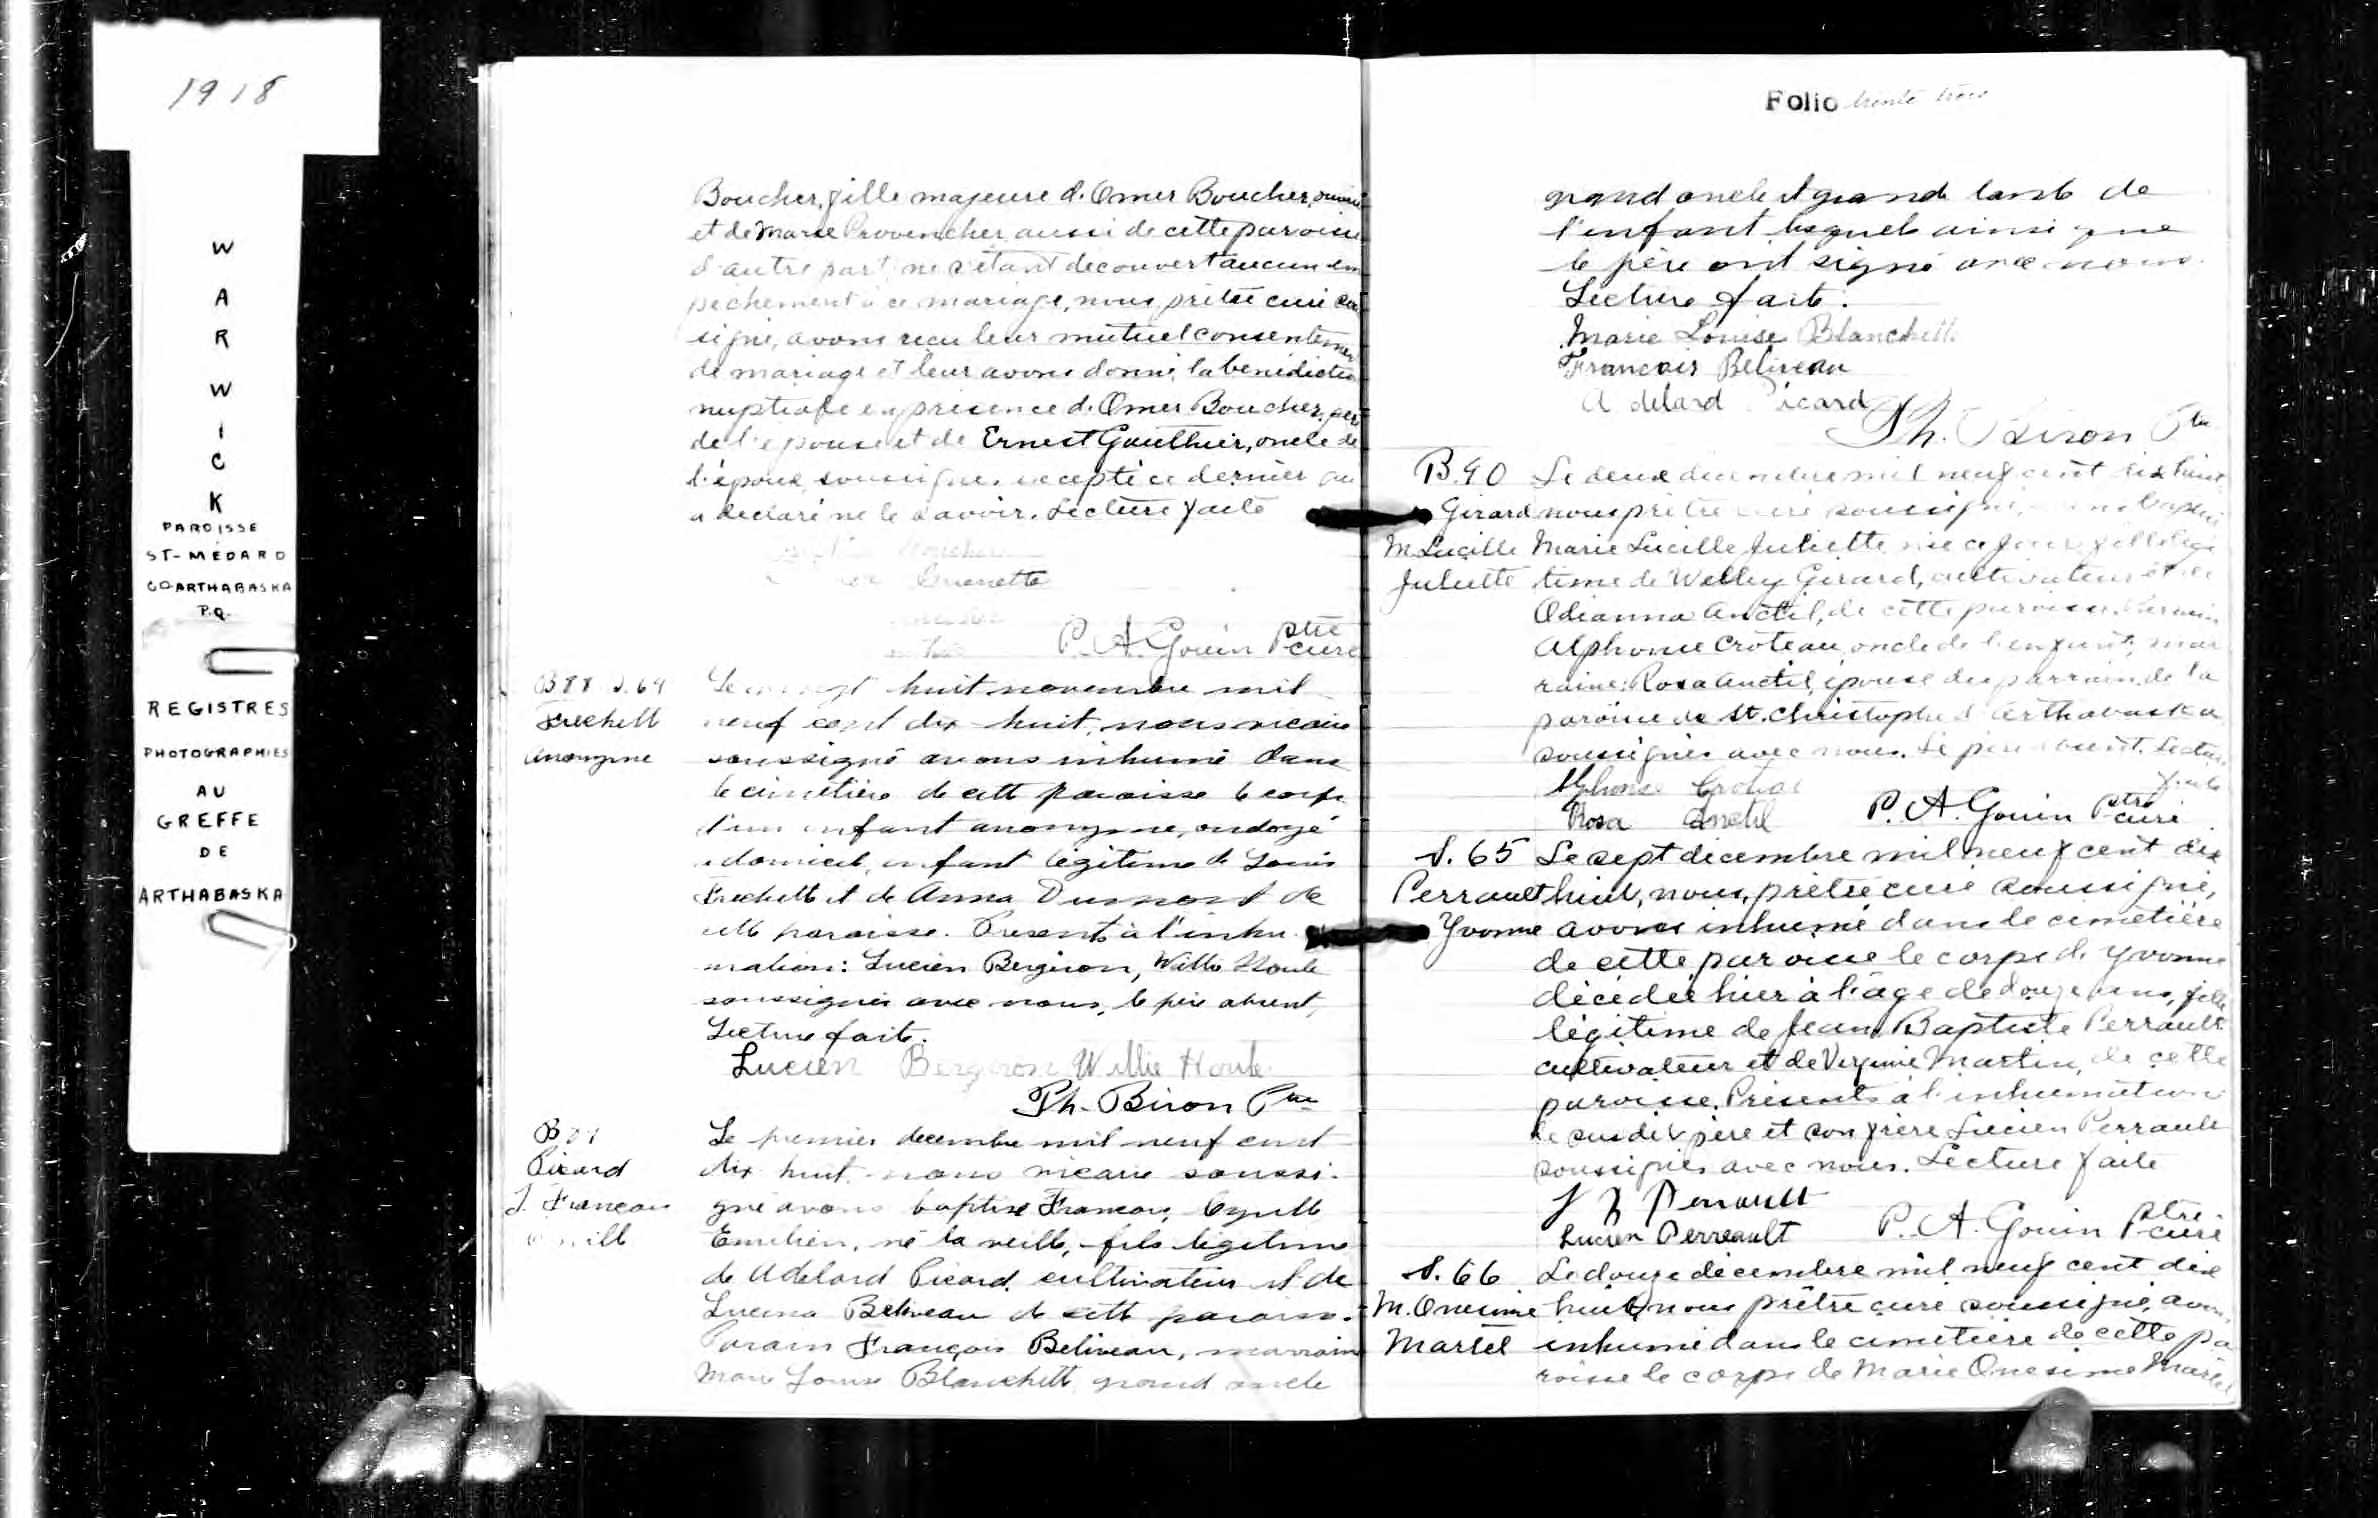 1918
W
A
R
W
I
C
K
PAROISSE
ST-MÉDARD
CO ARTHABASKA
P.Q.
REGISTRES
PHOTOGRAPHIES
AU
GREFFE
DE
ARTHABASKA
Boucher, fille majeure d. Omer Boucher,
et de Marie Provencher aussi de cette paroisse
d'autre part, ne s'étant decouvert aucun em
pechement à ce mariage, nous, prêtre curé sou
signé, avons recu leur mutuel consentement
de mariage et leur avons donné la bénédiction
nuptiale en présence d. Omer Boucher, père
de l'épouse et de Ernest Gauthier, oncle de
l'époux, soussignés excepté ce dernier qui
a déclaré ne le savoir. Lecture faite
Boucher
P. A. Gouin Ptre
curé
B 88 S. 64
Frechette
Anonyme
Le vingt huit novembre mil
neuf cent dix-huit, nous vicaire
soussigné avons inhumé dans
le cimetière de cette paroisse le corps
d'un enfant anonyme, ondoyé
a domicile, enfant légitime de Louis
Frechette et de Anna Dumont de
cette paroisse. Presents à l'inhu-
mation: Lucien Bergeron, Willie Houle
soussignés avec nous, le père absent,
Lecture faite.
Lucien Bergeron Willie Houle
Ph. Biron Ptre
B 89
Picard
J. Francois
Le premier decembre mil neuf cent
dix huit nous vicaire soussi-
gné avons baptisé Francois, Cyrille
Emilien, né la veille, fils légitime
de Adelard Picard, cultivateur et de
Lucina Beliveau de cette paroisse.
Parain François Beliveau, marraine
Marie Louise Blanchette grand oncle
Folio trente trois
grand oncle et grande tante de
l'enfant lesquels ainsi que
le père ont signé avec nous.
Lecture faite.
Marie Louise Blanchette
Francois Beliveau
Adelard Picard
Ph. Biron Ptre
B. 90
Girard
M. Lucille
Juliette
Le deux decembre mil neuf cent dix huit
nous prêtre curé soussigné, avons baptisé
Marie Lucille Juliette née ce jour, fille légi
time de Welley Girard, cultivateur et de
Odianna Anctil, de cette paroisse. Parrain
Alphonse Croteau, oncle de l'enfant, mar
raine: Rosa Anctil, épouse du parrain, de la
paroisse de St. Christophe d'Arthabaska
soussignés avec nous. Le père absent. Lecture
faite
Alphonse Croteau
Rosa Anctil P. A. Gouin Ptre
curé
S. 65
Perrault
Yvonne
Le sept décembre mil neuf cent dix
huit, nous, prêtre curé soussigné,
avons inhumé dans le cimetière
de cette paroisse le corps d. Yvonne
décédée hier à l'âge de douze ans, fille
légitime de Jean Baptiste Perrault
cultivateur et de Virginie Martin, de cette
paroisse. Présents à l'inhumation
le susdit père et son frère Lucien Perrault
soussignés avec nous. Lecture faite
J B Perrault
Lucien Perreault P. A. Gouin Ptre
curé
S. 66
M. Onesime
Martel
Le douze décembre mil neuf cent dix
huit, nous prêtre curé soussigné, avons
inhumé dans le cimetière de cette pa
roisse le corps de Marie Onesime Martel